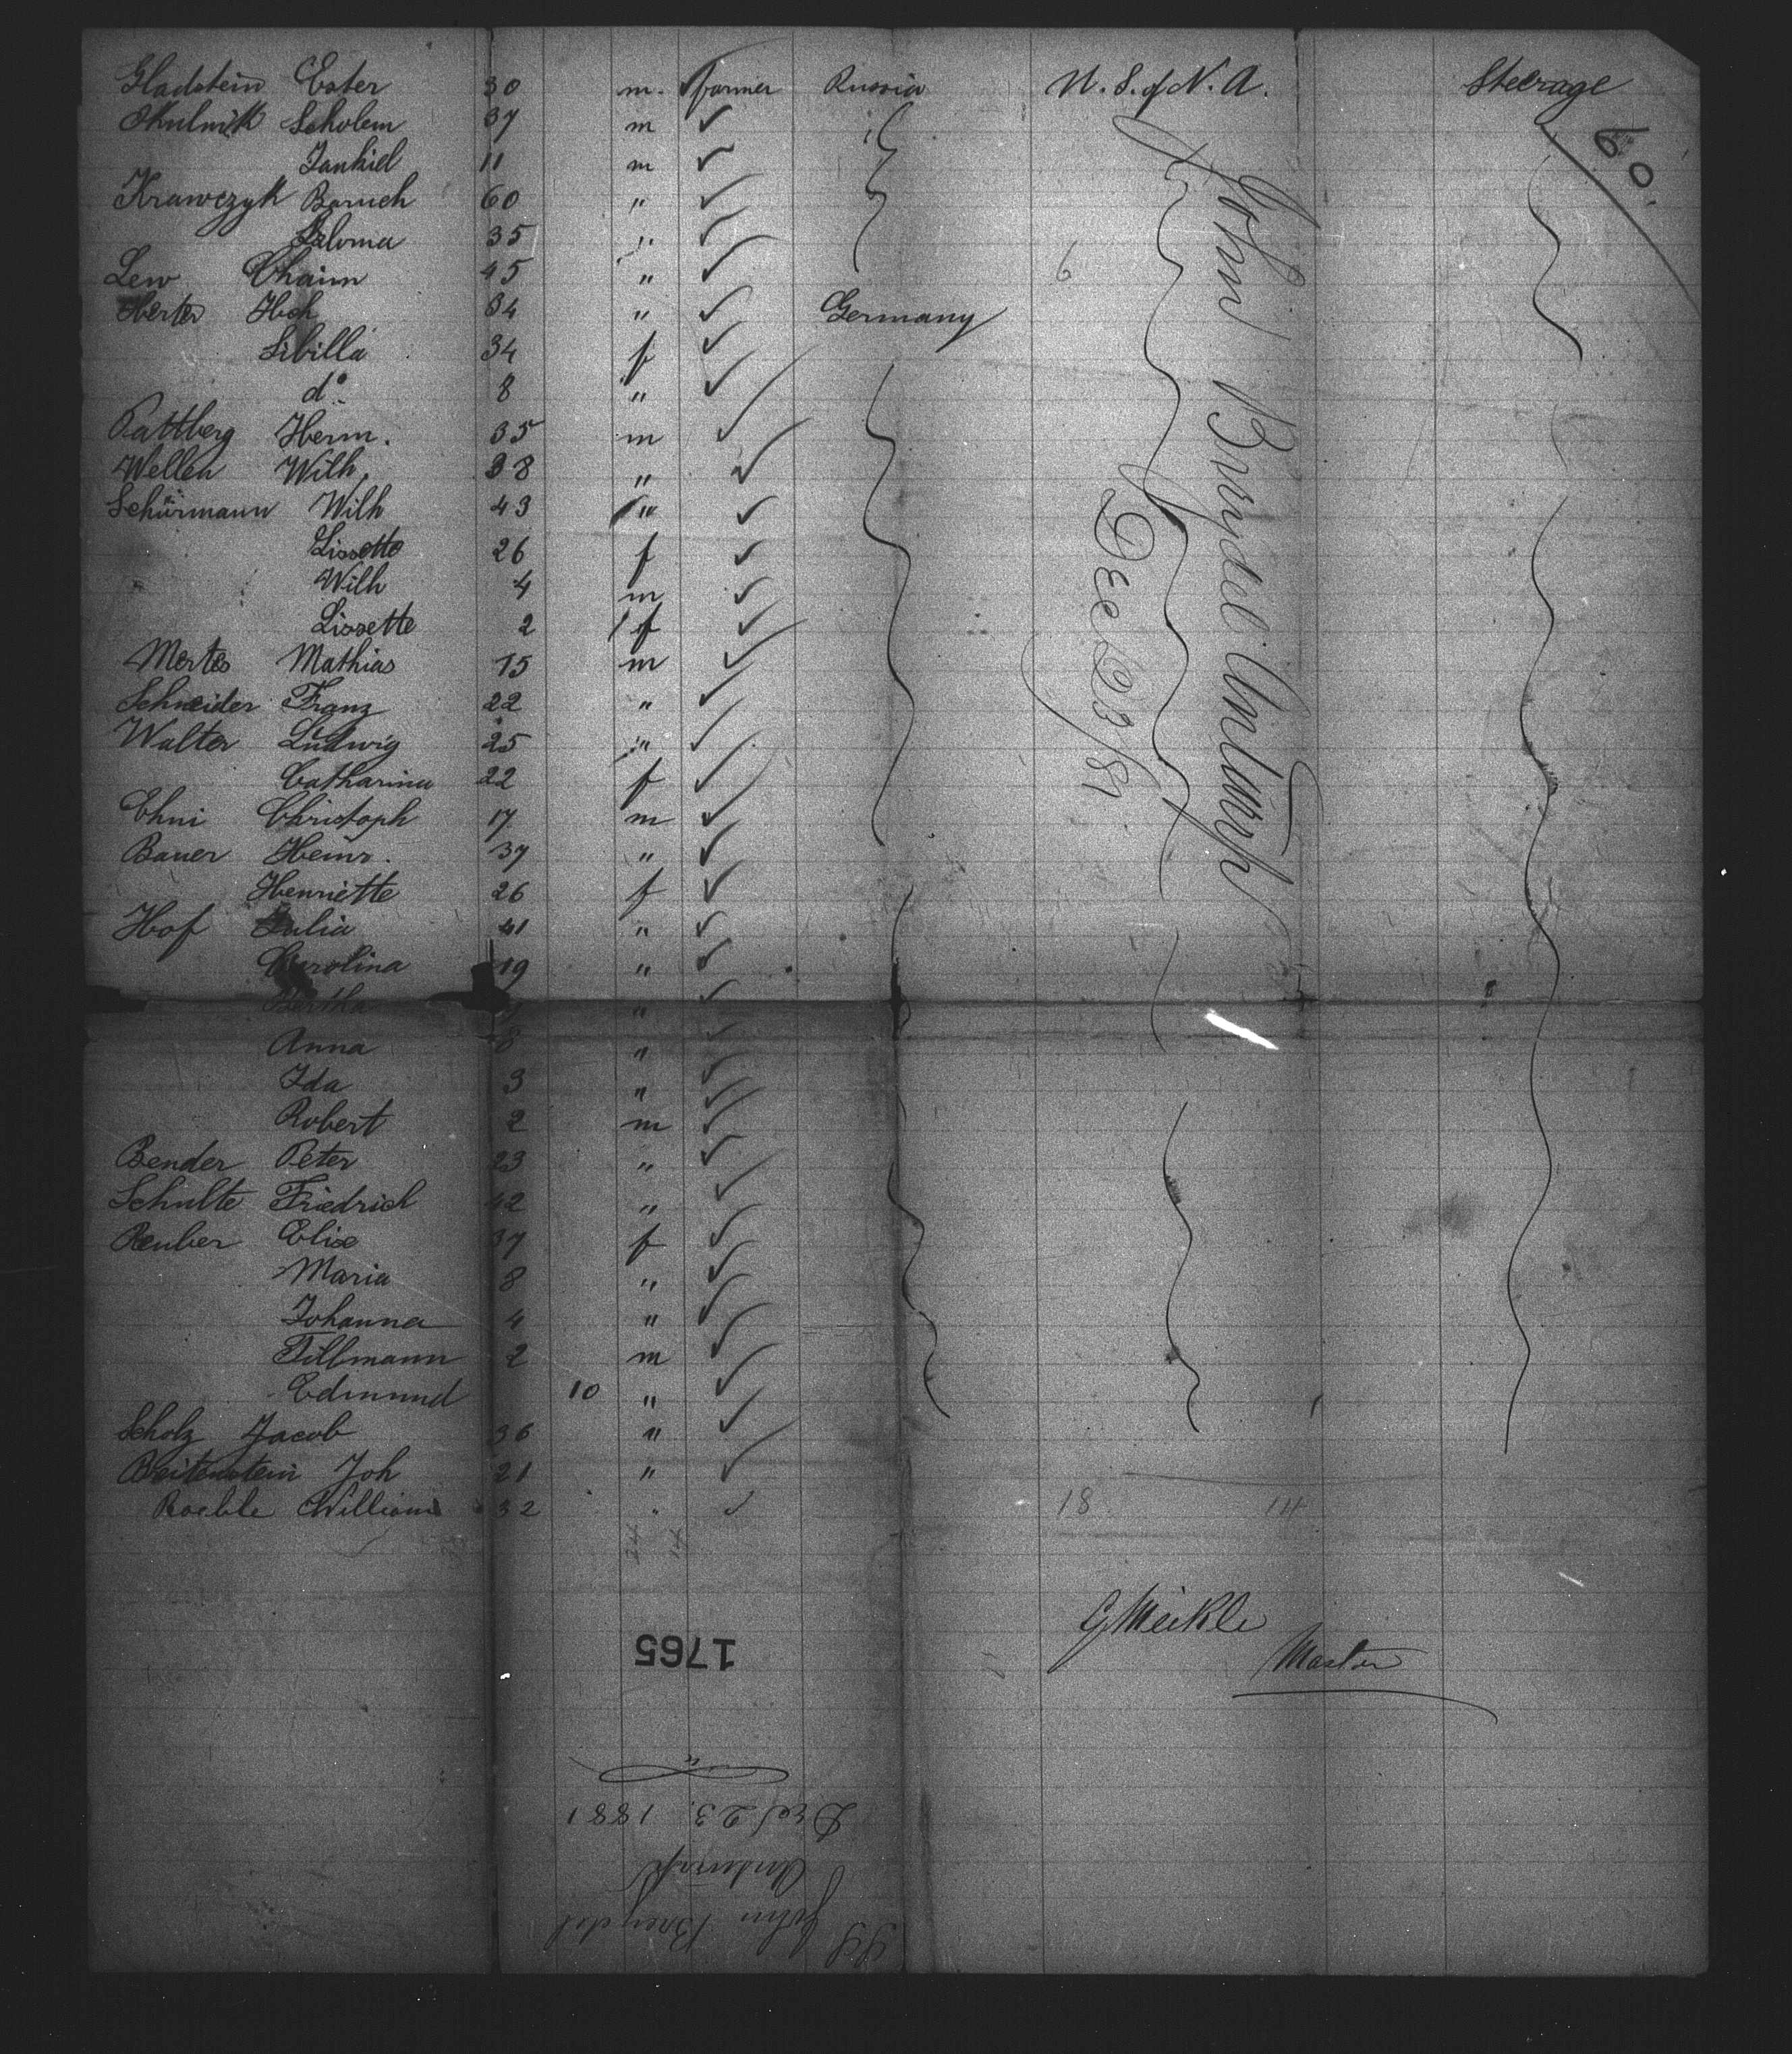 Gladstein Ester 30 m. farmer Russia U. S. of N. A. Steerage
60.
Okulnik Scholem 37 m
Jankiel 11 m
Krawczyk Baruch 60 "
Saloma 35 "
Lew Chaim 45 " 6
Herter Hch 34 " Germany
Sibilla 34 f
do 8 "
Pattberg Herm. 35 m
Wellen Wilh. 38 "
Schürmann Wilh 43 "
Lissette 26 f
Wilh 4 m
Lissette 2 f
Mertes Mathias 15 m
Schneider Franz 22 "
Walter Ludwig 25 "
Catharina 22 f
Ehni Christoph 17 m
Bauer Heinr. 37 "
Henriette 26 f
Hof Julia 41 "
Carolina 19 "
Bertha "
Anna "
Ida 3 "
Robert 2 m
Bender Peter 23 "
Schulte Friedrich 42 "
Reuber Elise 37 f
Maria 8 "
Johanna 4 "
Tillmann 2 m
Edmund 10 "
Scholz Jacob 36 "
Breitenstein Joh 21 "
Roehle William 32 "
18 14
24 14
John Brydel Antwerp
Dec 23/81
G Meikle
Master
1765
SS John Brydel
Antwerp
Dec 23. 1881